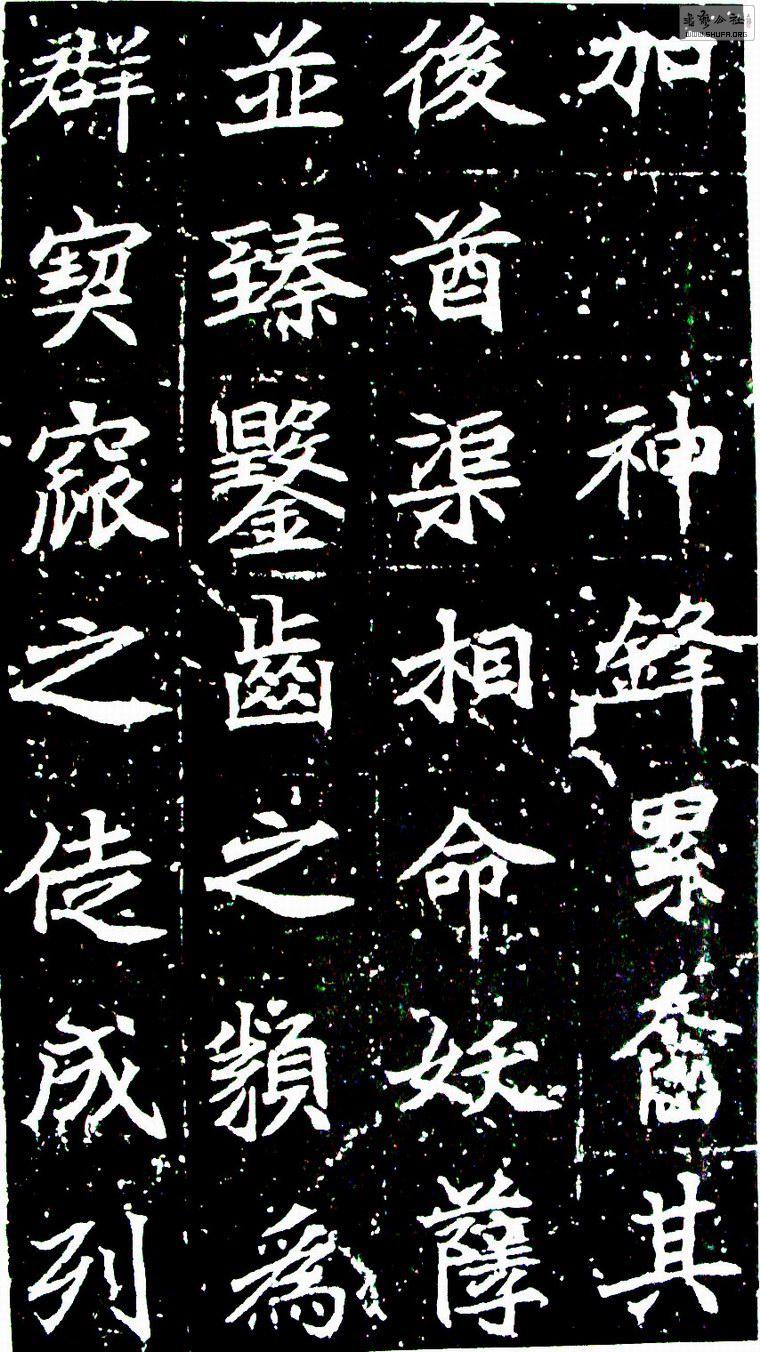 加 神鋒累奮其
後酋渠相命妖孽
並臻鑿齒之類為
群窫窳之徒成列
书艺公社
WWW.SHUFA.ORG